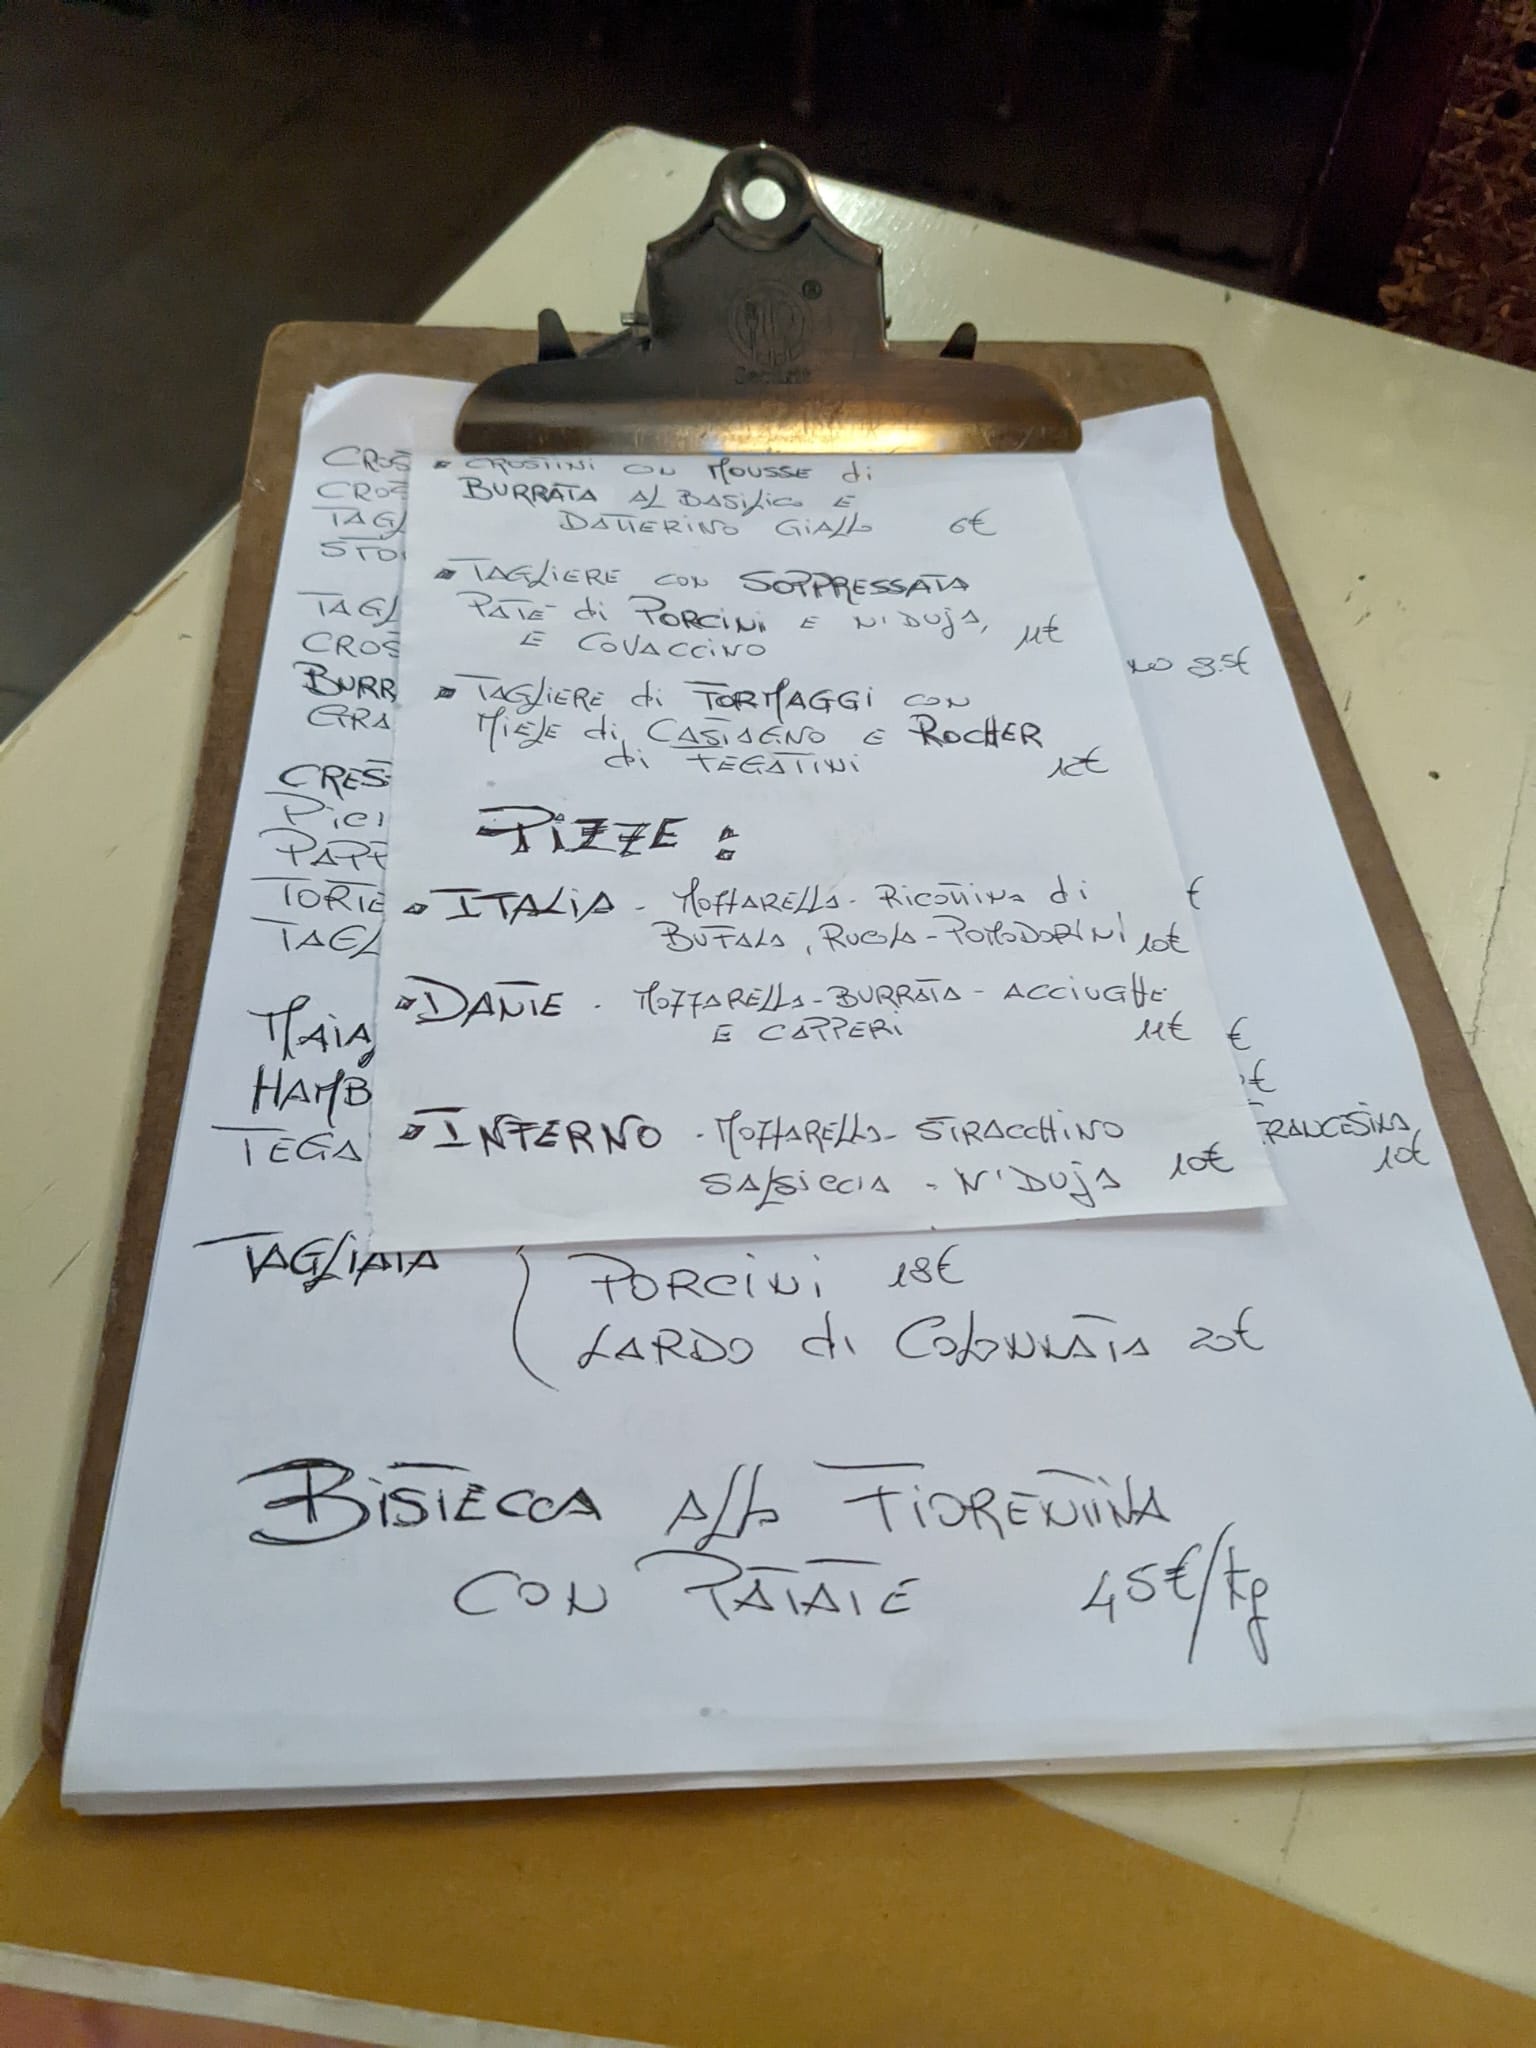 CROSTINI CON MOUSSE di
BURRATA AL BASILICO E
DATTERINO GIALLO 6€
TAGLIERE CON SOPPRESSATA
PATÈ di PORCINI E N'DUJA,
E COVACCINO 11€
TAGLIERE di FORMAGGI CON
MIELE di CASTAGNO E ROCHER
di FEGATINI 12€
PIZZE :
ITALIA - MOZZARELLA - RICOTTINA di
BUFALA, RUCOLA - POMODORINI 10€
DANTE - MOZZARELLA - BURRATA - ACCIUGHE
E CAPPERI 11€
INFERNO - MOZZARELLA - STRACCHINO
SALSICCIA - N'DUJA 10€
CROS
CROS
TAGL
STO
TAGL
CROS
BURR
GRA
CRES
PiCi
PAPP
TORTE
TAGL
MAIA
HAMB
TEGA
NO 8.5€
€
€
€
FRANCESINA
10€
TAGLIATA
PORCINI 18€
LARDO di COLONNATA 20€
BISTECCA ALLA FIORENTINA
CON PATATE 45€/kg